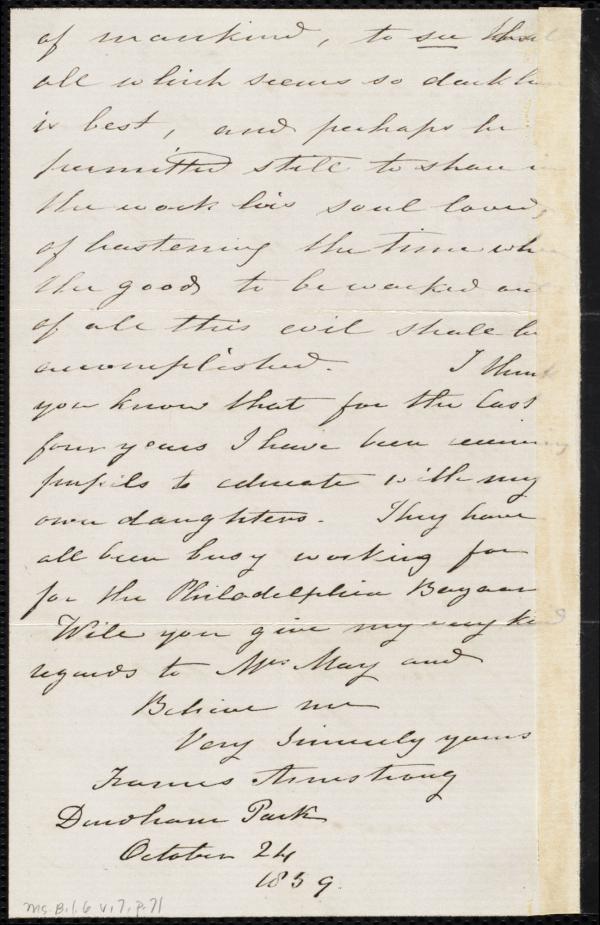 of mankind, to see that
all which seems so dark
is best, and perhaps be
permitted still to share in
the work his soul loved,
of hastening the time when
the good to be worked out
of all this evil shall be
accomplished. I think
you know that for the last
four years I have been receiving
pupils to educate with my
own daughters. They have
all been busy working for
for the Philadelphia Bazaar
Will you give my very kind
regards to Mrs May and
Believe me
Very Sincerely yours
Frances Armstrong
Park
October 24
1859.
Ms. B.1.6 v.7, p.71